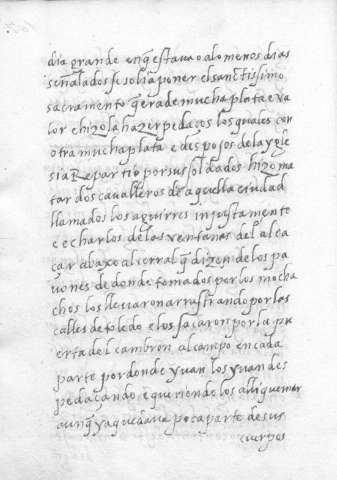 dia grande en q̃ estava o alomenos dias
señalados se solia poner el sanctisimo
sacramento q̃ era de mucha plata e va
lor e hizola hazer pedaços los quales con
otra mucha plata e despojos de la ygle
sia Repartio por sus soldados hizo ma
tar dos cavalleros de aquella ciudad
llamados los aguirres injustamente
e echarlos de las ventanas del alca
çar abaxo al corral q̃ dizen de los pa
vones de donde tomados por los mocha
chos los llevaron arrastrando por las
calles de toledo e los sacaron por la pu
erta del cambron al campo en cada
parte por donde yvan los yvan des
pedaçando e queriendolos alli quemar
aunq̃ ya quedava poca parte de sus
cuerpos